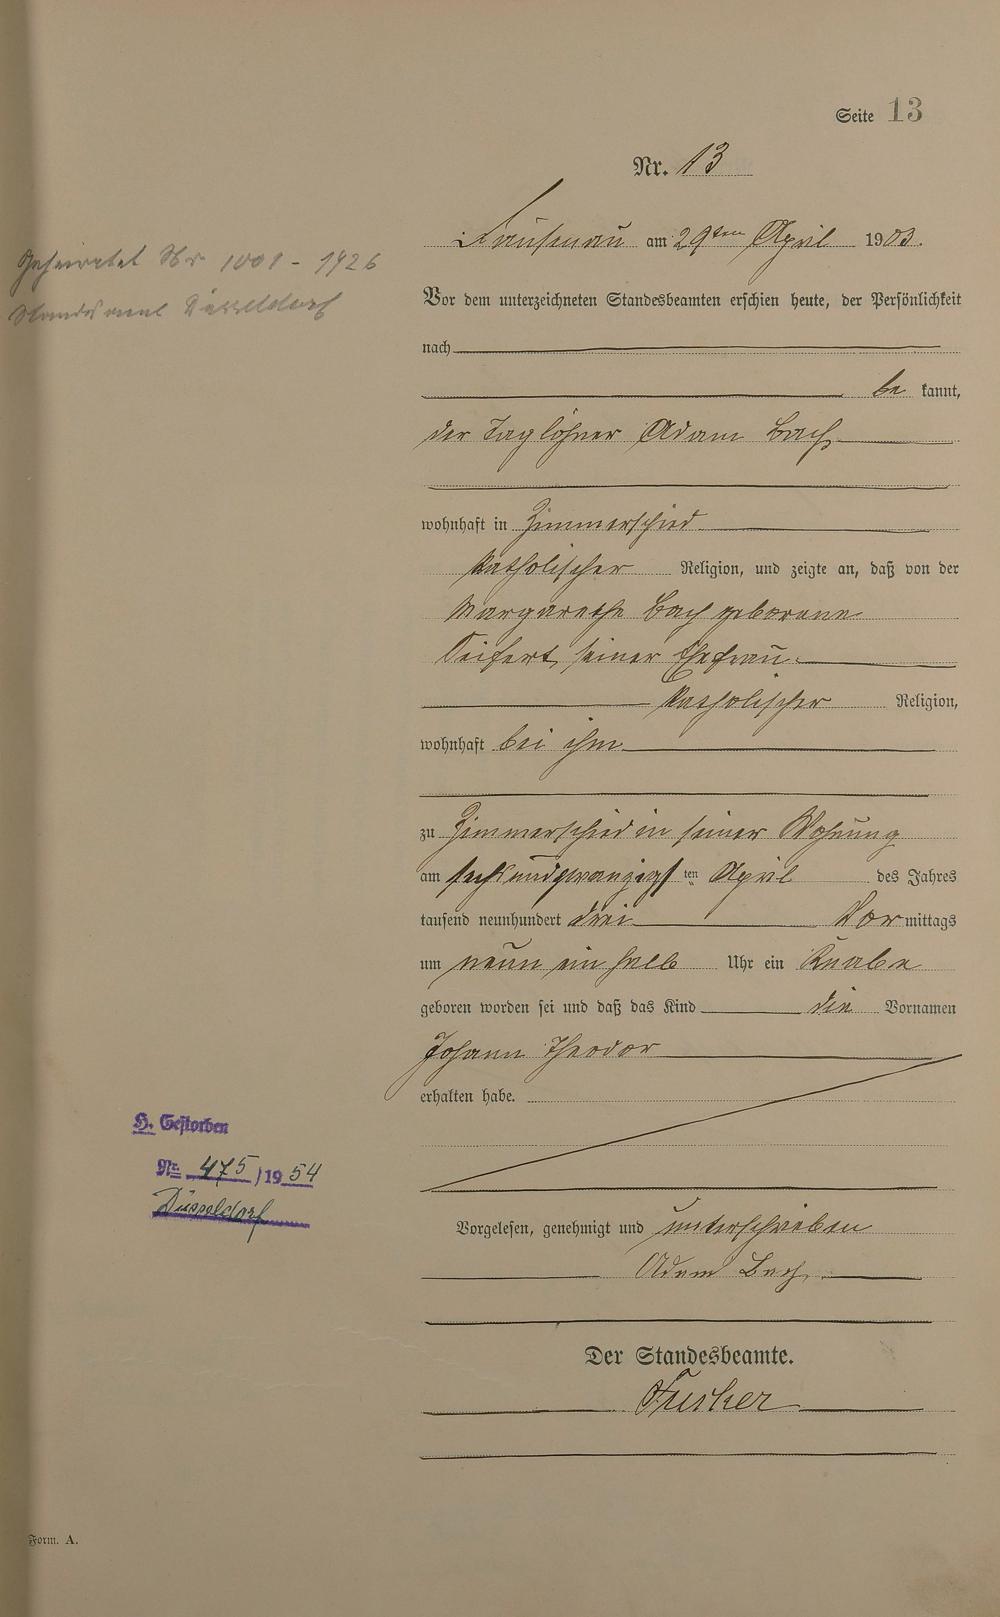 Seite 13
Nr. 13
am 29ten April 1903.
Geheiratet Nr 1001 - 1926
Standesamt Düsseldorf
Vor dem unterzeichneten Standesbeamten erschien heute, der Persönlichkeit
nach
be kannt,
der Taglöhner Adam Bach
wohnhaft in Zimmerschied
katholischer Religion, und zeigte an, daß von der
Margarethe Bach geborene
Seifert, seiner Ehefrau
katholischer Religion,
wohnhaft bei ihm
zu Zimmerschied in seiner Wohnung
am sechsundzwanzigsten April des Jahres
tausend neunhundert drei Vormittags
um neun ein halb Uhr ein Knabe
geboren worden sei und daß das Kind die Vornamen
Johann Theodor
erhalten habe.
H. Gestorben
No 475/1954
Düsseldorf
Vorgelesen, genehmigt und unterschrieben
Adam Bach
Der Standesbeamte.
Form. A.